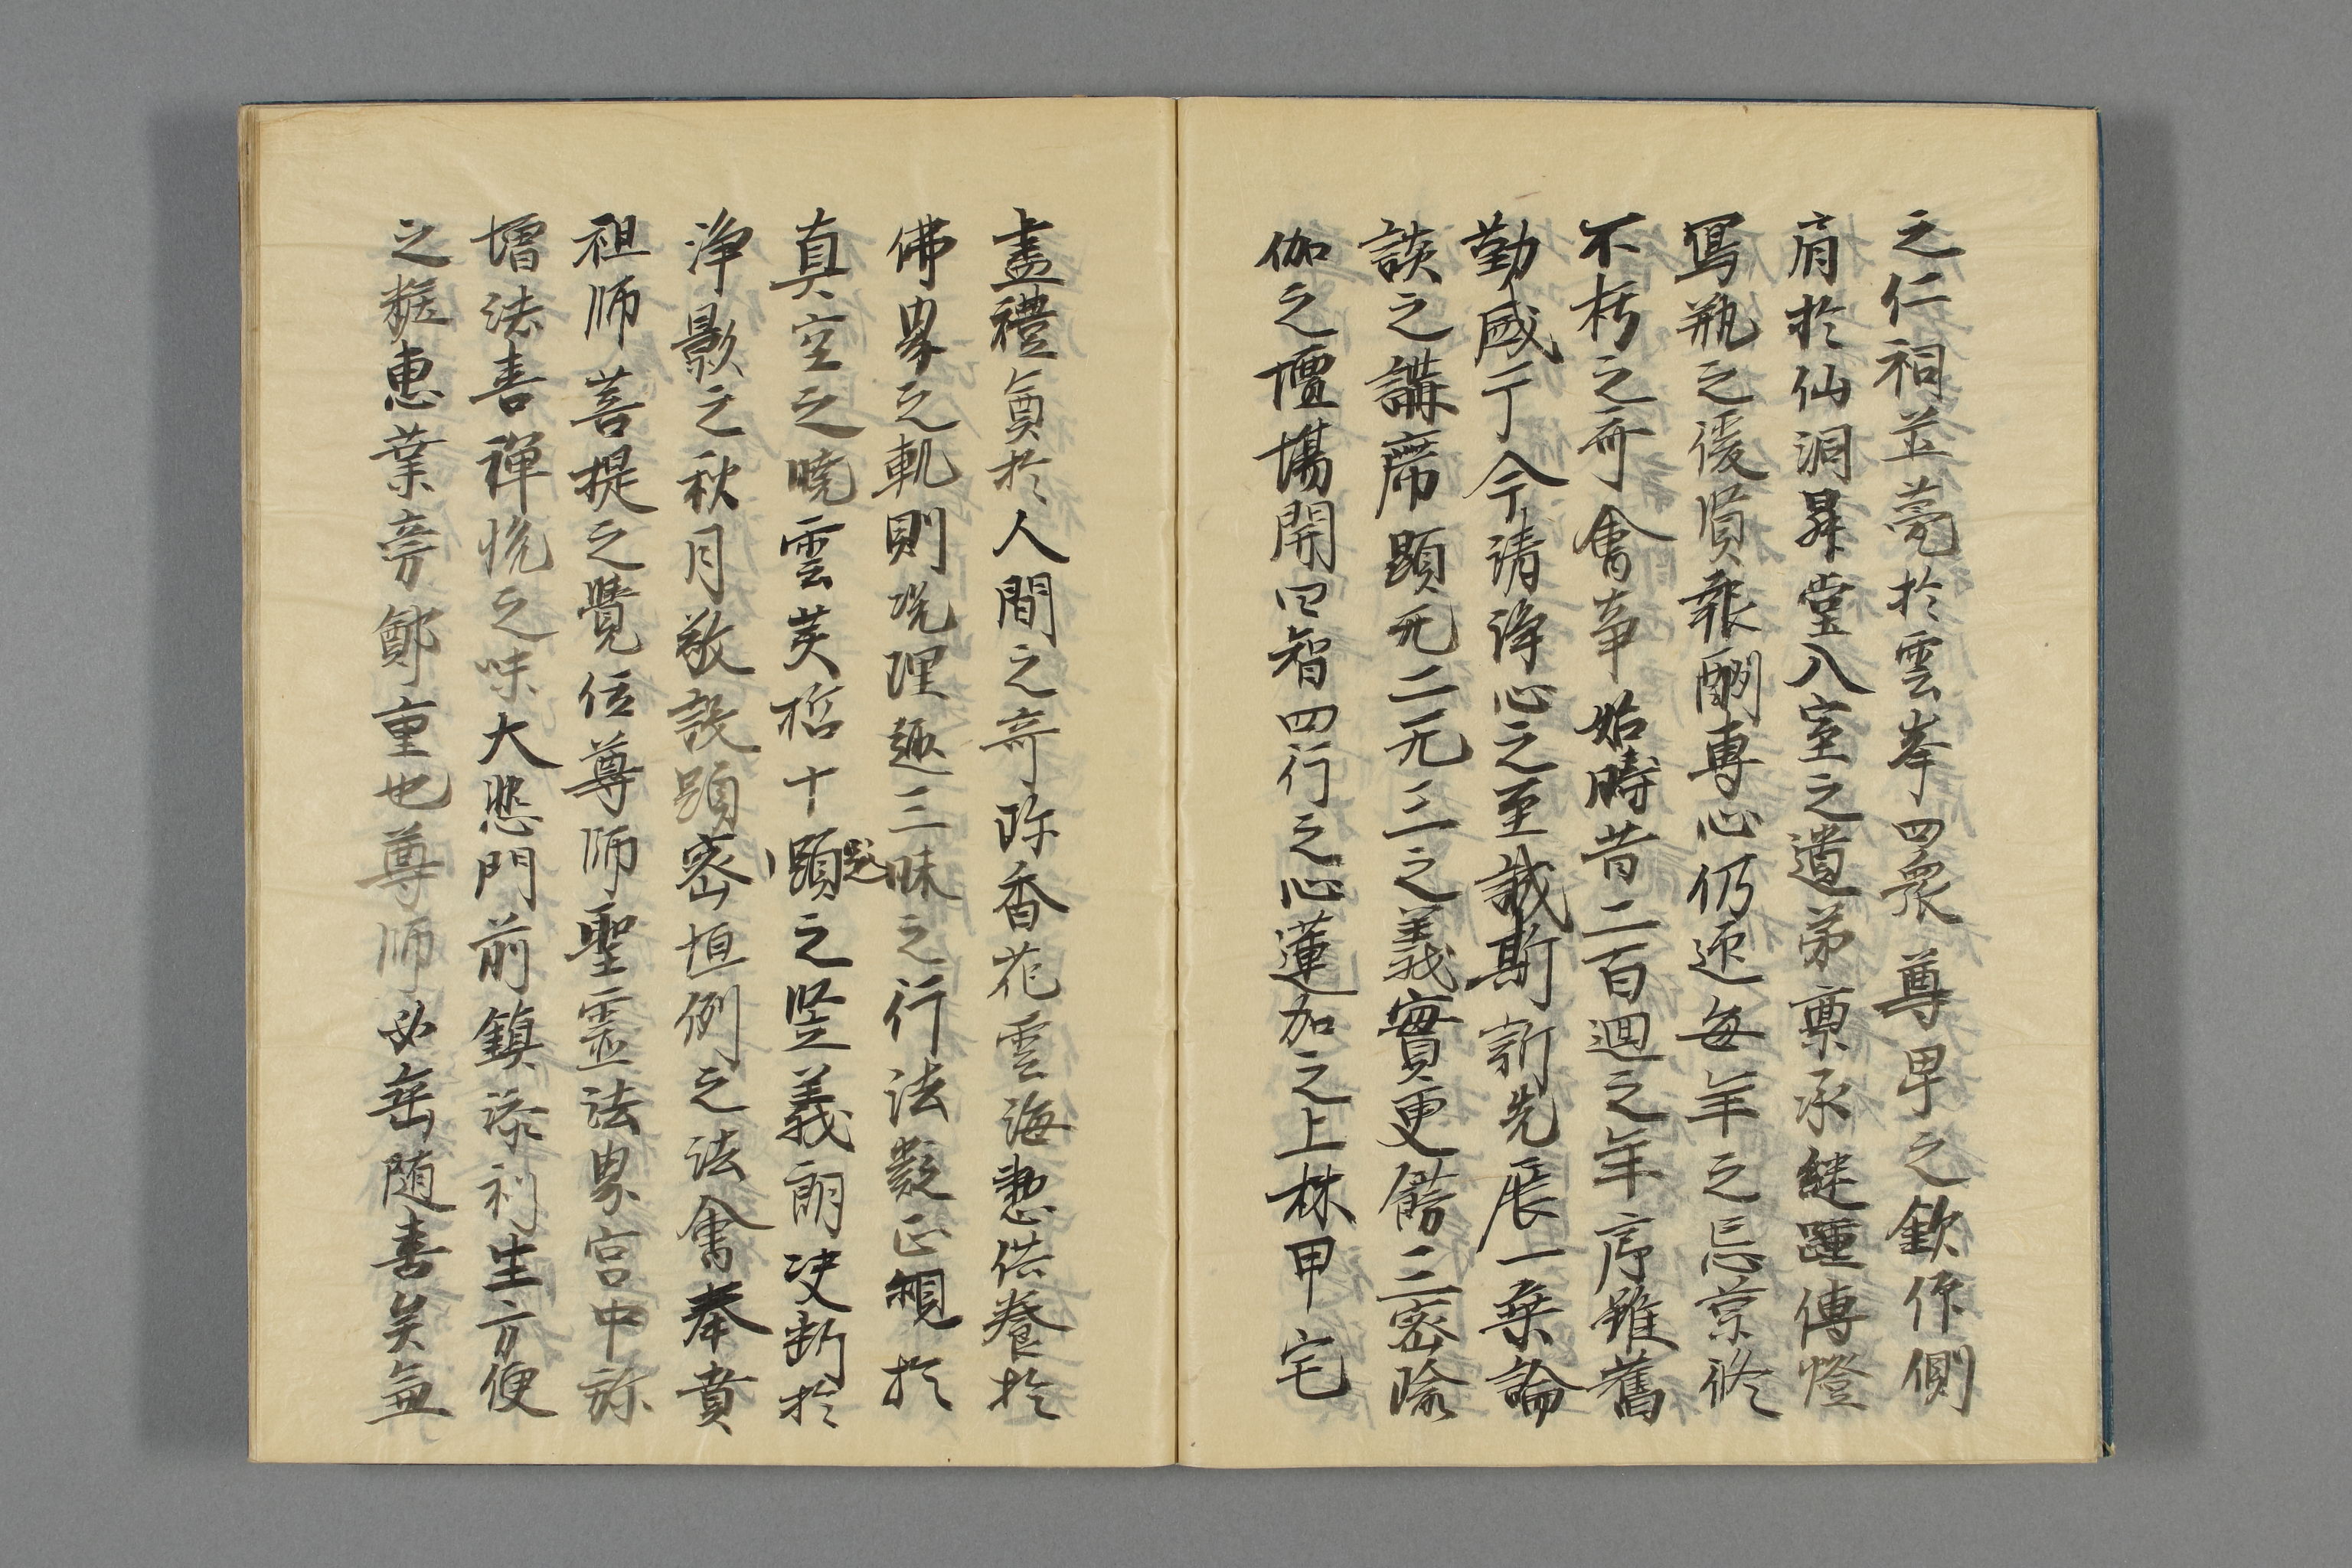 之仁祠並甍於雲峯四衆尊卑之欽作側
肩於仙洞昇堂入室之遺弟稟承継踵傳燈
寫瓶之後賢報酬専心仍迎毎年之忌景修
不朽之斎會事始時昔二百廻之年序雖舊
勤感于今請浄心之至誠斯新先展一乗論
談之講席顕無二無三之義實更餝三密瑜
伽之壇場開四智四行之心蓮加之上林甲宅
盡禮奠於人間之奇珎香花雲海懃供養於
佛界之軌則况理趣三昧之行法凝正観於
真空之暁雲英哲十題之竪義朗决断於
浄影之秋月敬設顕密恒例之法會奉賁
祖師菩提之覺位尊師聖霊法界宮中弥
増法喜禅悦之味大悲門前鎮添利生方便
之粧恵業旁鄭重也尊師必垂随喜矣無